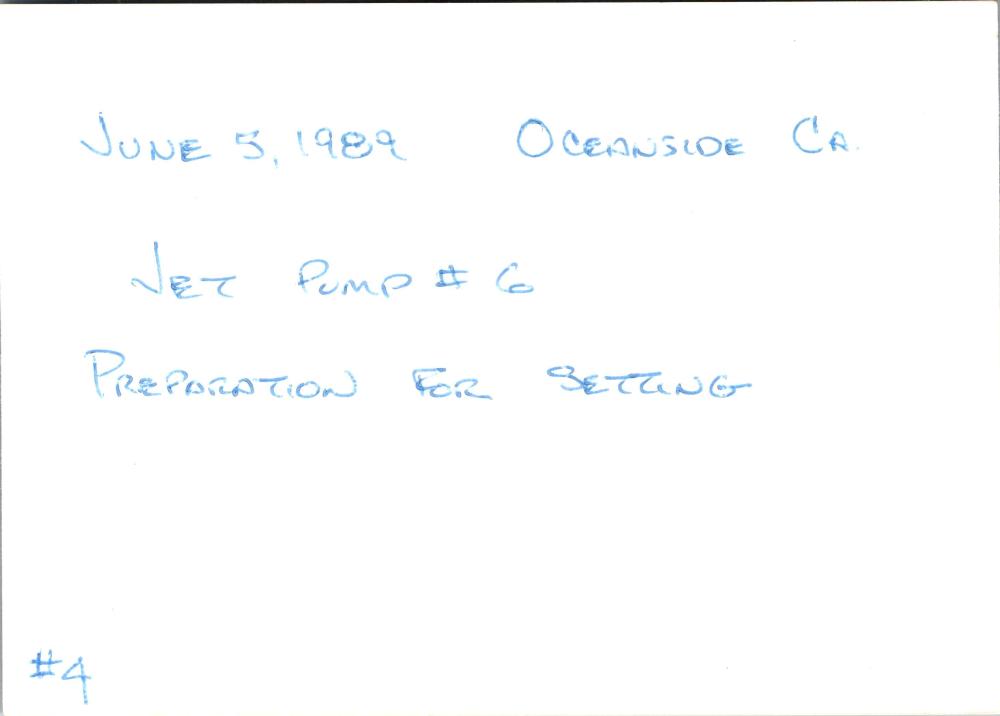 June 5, 1989 Oceanside Ca.
Jet Pump # 6
Preparation for Setting
#4